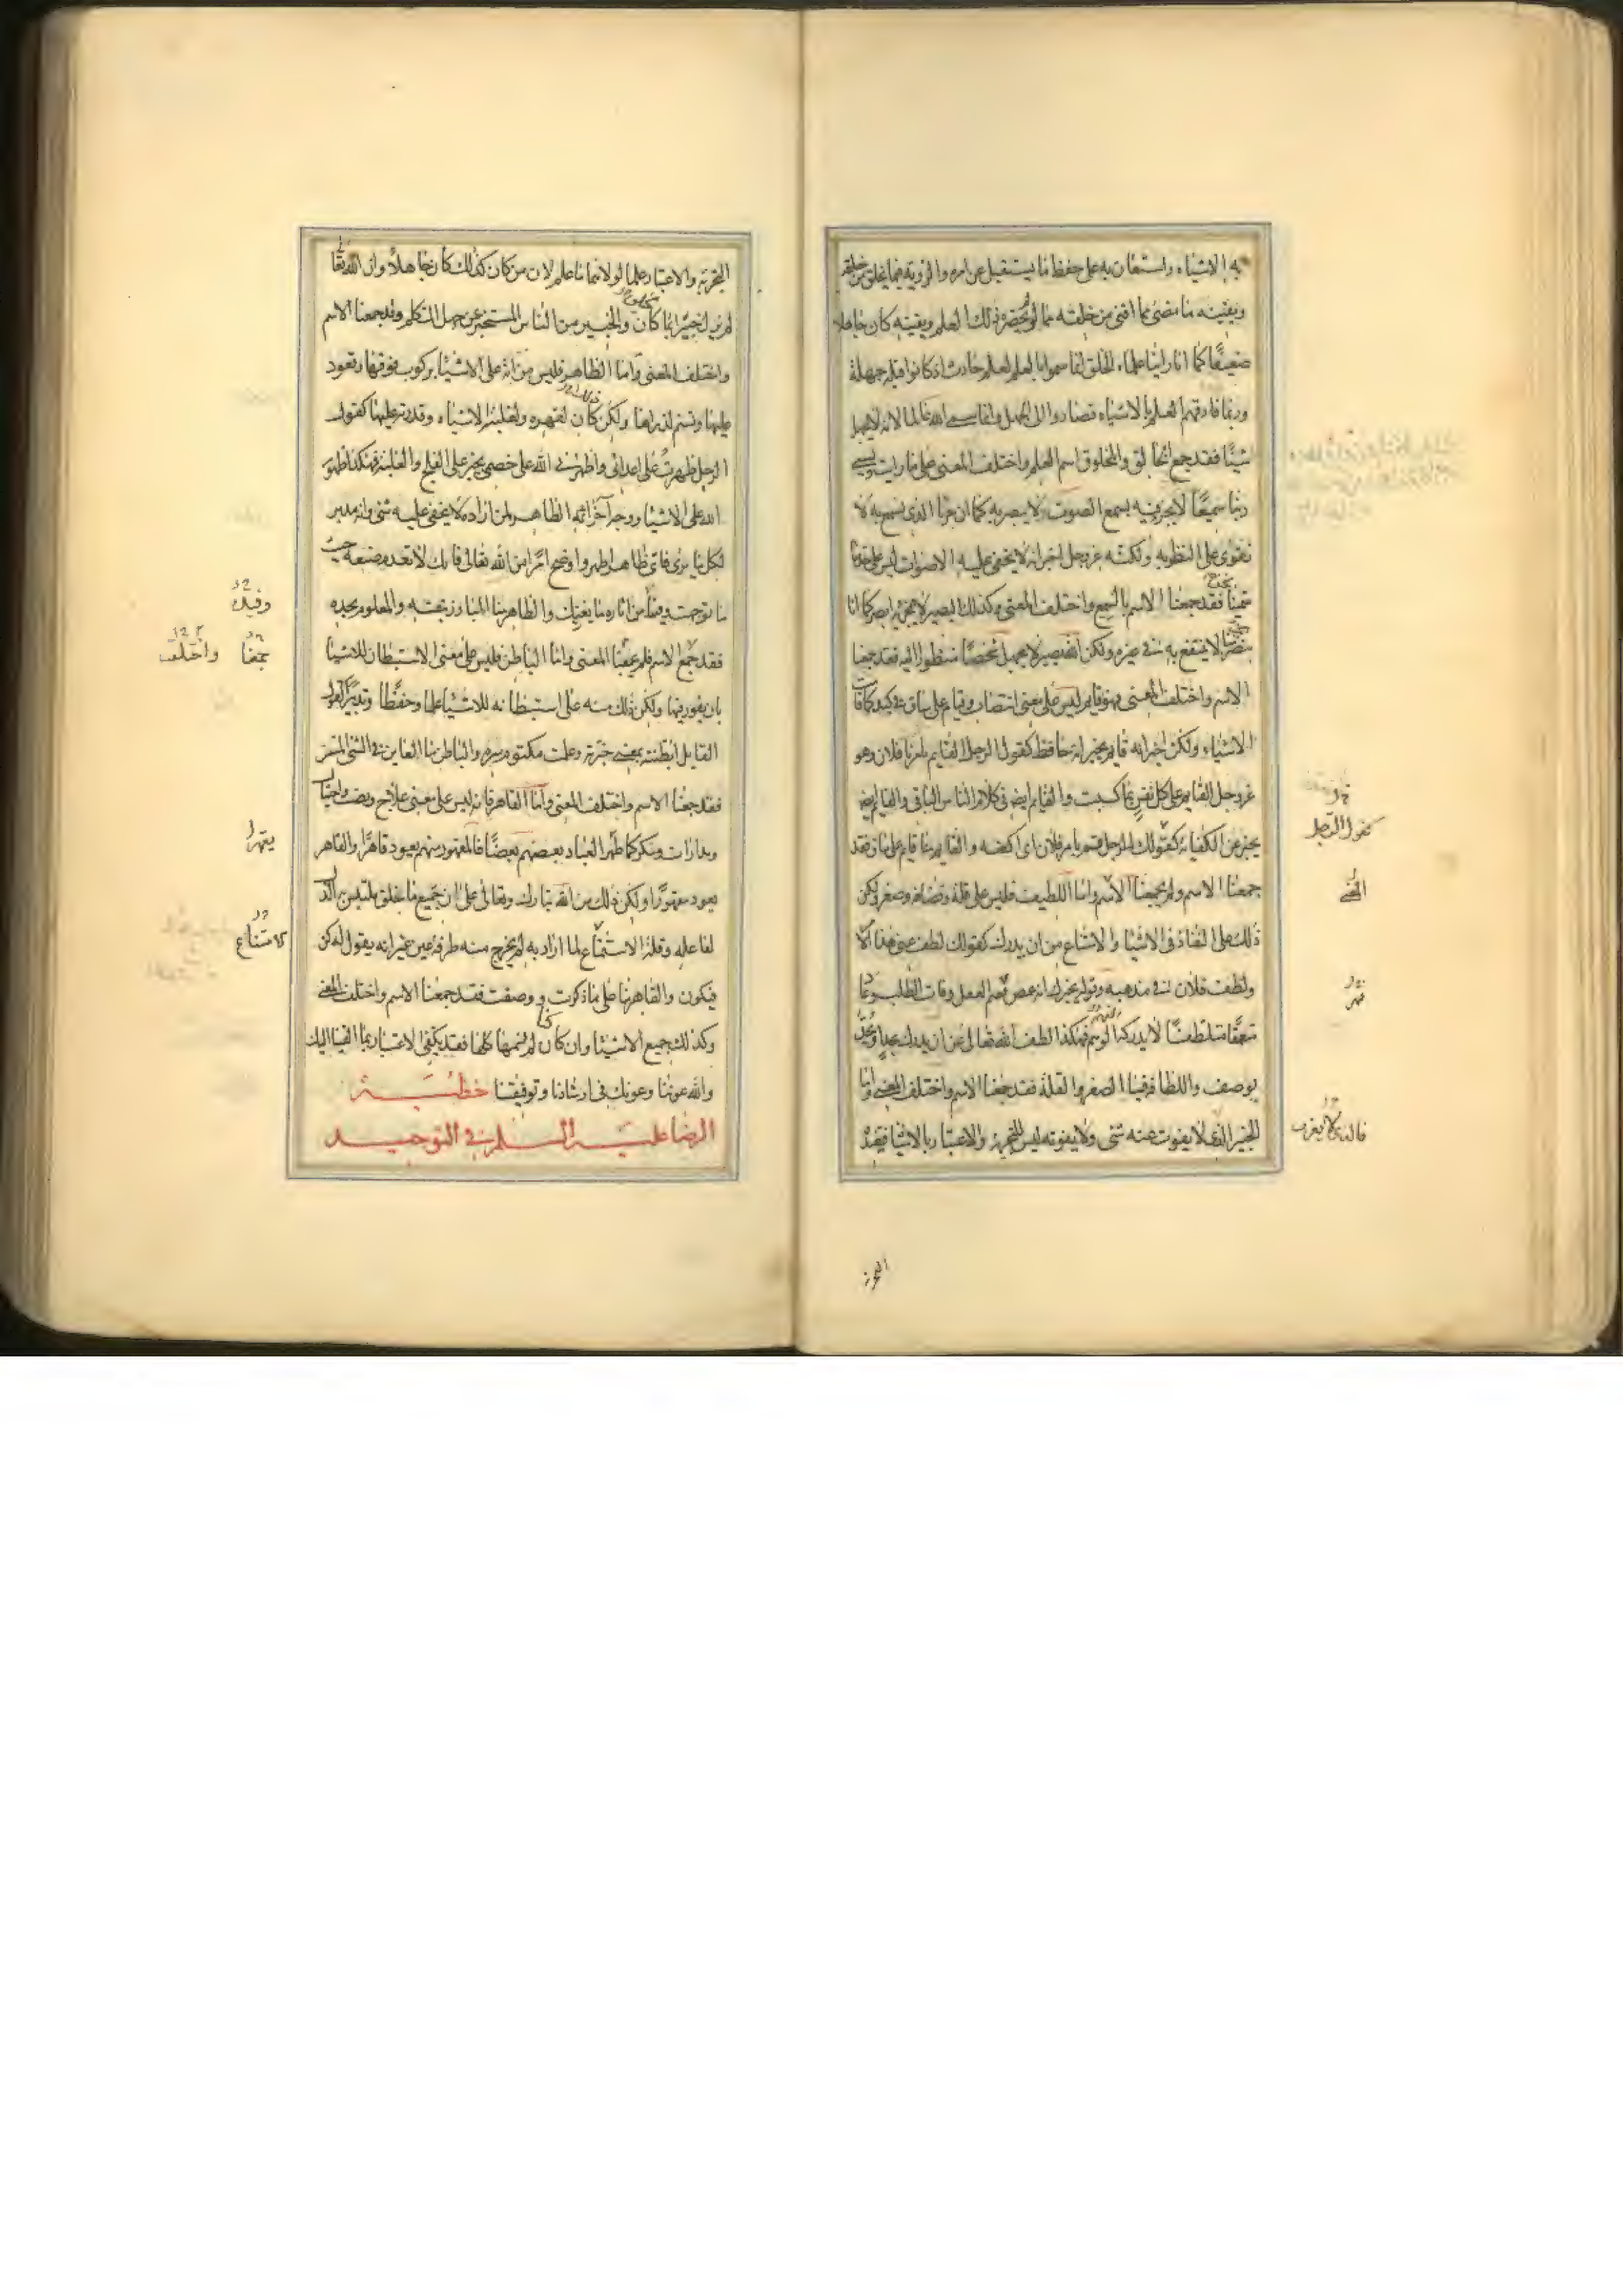 به الاشياء واستعان به على حفظ ما يستقبل من امره والروية فيما يخلق من خلقه
ويفنيه ما مضى مما افنى من خلقه مما لو لم يحضره ذلك العلم ويفنيه كان جاهلا
ضعيفا كما انا راينا علماء الخلق انما سموا بالعلم لعلم حادث اذ كانوا قبله جهلة
وربما فارقهم العلم بالاشياء فصاروا الى الجهل وانما سمى الله عالما لانه لا يجهل
شيئا فقد جمع الخالق والمخلوق اسم العلم واختلف المعنى على ما رايت وسمى
ربنا سميعا لا بجزء فيه يسمع الصوت لا يبصر به كما ان جزأنا الذى نسمع به لا
نقوى على النظر به ولكنه عز وجل اخبر انه لا يخفى عليه الاصوات ليس على حد ما
سمينا نحن فقد جمعنا الاسم بالسميع واختلف المعنى وكذلك البصير لا بجزء به ابصر كما انا
نبصر بجزء منا لا ينتفع به فى غيره ولكن الله بصير لا يجهل شخصا منظورا اليه فقد جمعنا
الاسم واختلف المعنى وهو قايم ليس على معنى انتصاب وقيام على ساق فى كبد كما قامت
الاشياء ولكن اخبر انه قايم يخبر انه حافظ كقول الرجل القايم بامرنا فلان وهو
عز وجل القايم على كل نفس بما كسبت والقايم ايضا فى كلام الناس الباقى والقايم ايضا
يخبر عن الكفاية كقولك للرجل قم بامر فلان اى اكفه والقايم منا قايم على ساق فقد
جمعنا الاسم ولم يجمعنا المعنى واما اللطيف فليس على قلة وقضافة وصغر ولكن
ذلك على النفاذ فى الاشيا والامتناع من ان يدرك كقولك لطف عنى هذا الامر
ولطف فلان فى مذهبه وقوله يخبرك انه غمض فبهر العقل وفات الطلب وعاد
متعمقا متلطفا لا يدركه الوهم فهكذا لطف الله تعالى عن ان يدرك بحد او يحد
بوصف واللطافة منا الصغر والقلة فقد جمعنا الاسم واختلف المعنى واما
الخبير الذى لا يفوت عنه شئ ولا يفوته ليس للتجربة والاعتبار بالاشيا فيفيده
كقول الرجل
التجربة والاعتبار علما لولاهما ما علم لان من كان كذلك كان جاهلا وان الله تعا
لم يزل خبيرا بما كان والخبير من الناس المستخبر عن جهل المتكلم وقد جمعنا الاسم
واختلف المعنى واما الظاهر فليس من انه على الاشيا بركوب فوقها وقعود
عليها وتسنم لذراها ولكن كان لقهره ولغلبته الاشياء وقدرته عليها كقول
الرجل ظهرت على اعدائى واظهرنى الله على خصمى يخبر على الفلج والغلبة فهكذا ظهور
الله على الاشيا ووجه آخر انه الظاهر لمن اراده لا يخفى عليه شئ وانه مدبر
لكل ما يرى فاى ظاهر اظهر واوضح امرا من الله تعالى فانك لا تعدم صنعه حيث
ما توجهت وفينا من آثاره ما يغنيك والظاهر منا البارز بنفسه والمعلوم بحده
فقد جمع الاسم فلم يجمعنا المعنى واما الباطن فليس على معنى الاستبطان للاشيا
بان يغور فيها ولكن ذلك منه على استبطانه للاشياء علما وحفظا وتدبيرا كقول
القايل ابطنته بمعنى خبرته وعلمت مكتوم سره والباطن منا الغاير فى الشئ المستتر
فقد جمعنا الاسم واختلف المعنى واما القاهر فانه ليس على معنى علاج ونصب واحتيال
ومدارات ومكر كما قهر العباد بعضهم بعضا فالمقهور منهم يعود قاهرا والقاهر
يعود مقهورا ولكن ذلك من الله تبارك وتعالى على ان جميع ما خلق ملتبس به الذل
لفاعله وقلة الامتناع لما اراد به لم يخرج منه طرفة عين غير انه يقول له كن
فيكون والقاهر منا على ما ذكرت ووصفت فقد جمعنا الاسم واختلف المعنى
وكذلك جميع الاشيا وان كان لم نسمها كلها فقد يكتفى الاعتبار بما القينا اليك
والله عوننا وعونك فى ارشادنا وتوفيقنا خطبة
الرضا عليه السلم فى التوحيد
جمعنا واختلف